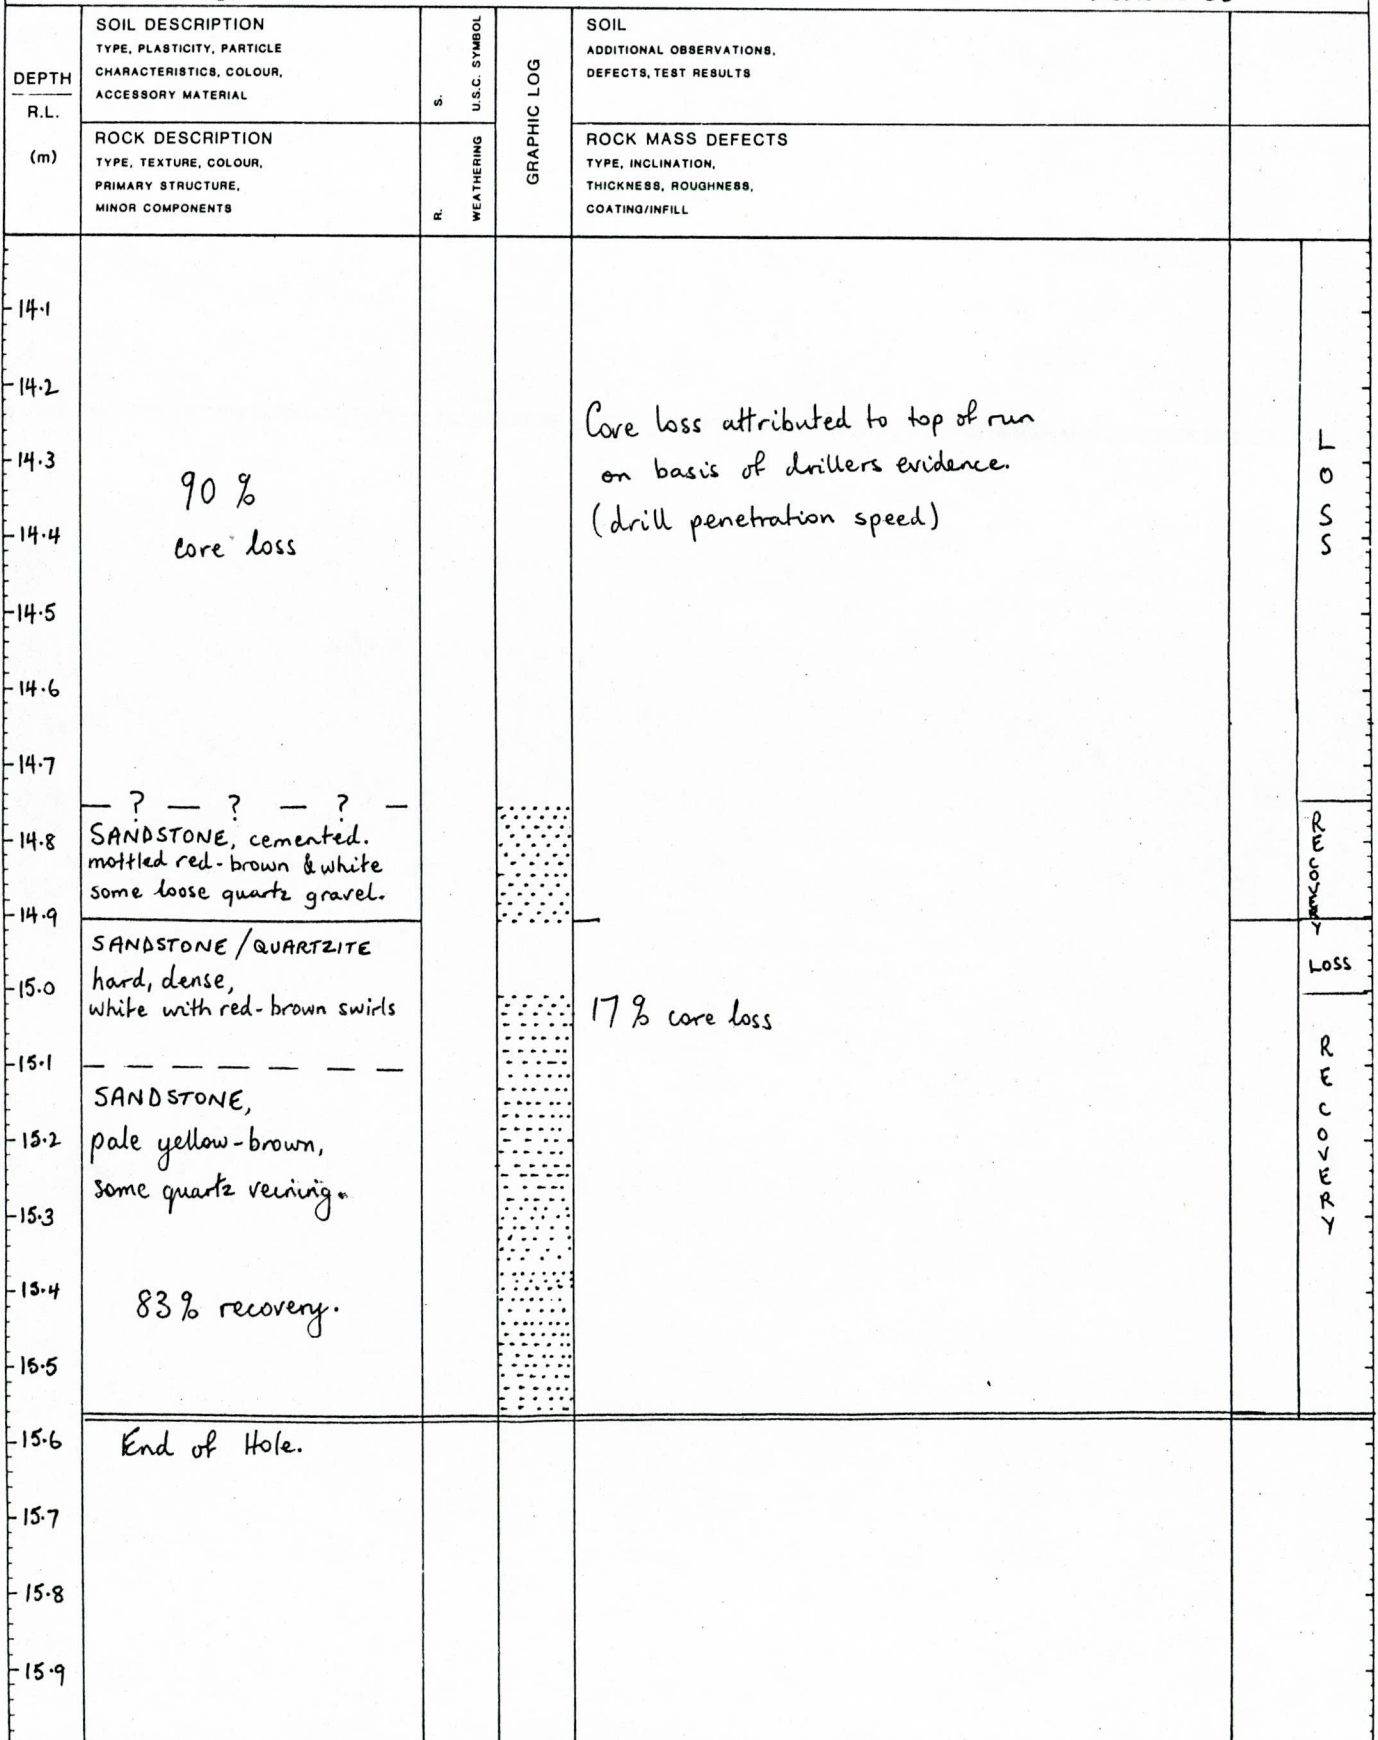 DEPTH
R.L.
(m)
SOIL DESCRIPTION
TYPE, PLASTICITY, PARTICLE
CHARACTERISTICS, COLOUR,
ACCESSORY MATERIAL
ROCK DESCRIPTION
TYPE, TEXTURE, COLOUR,
PRIMARY STRUCTURE,
MINOR COMPONENTS
S. U.S.C. SYMBOL
R. WEATHERING
GRAPHIC LOG
SOIL
ADDITIONAL OBSERVATIONS,
DEFECTS, TEST RESULTS
ROCK MASS DEFECTS
TYPE, INCLINATION,
THICKNESS, ROUGHNESS,
COATING/INFILL
14.1
14.2
14.3
14.4
14.5
14.6
14.7
14.8
14.9
15.0
15.1
15.2
15.3
15.4
15.5
15.6
15.7
15.8
15.9
90 %
core loss
— ? — ? — ? —
SANDSTONE, cemented.
mottled red-brown & white
some loose quartz gravel.
SANDSTONE/QUARTZITE
hard, dense,
white with red-brown swirls
SANDSTONE,
pale yellow-brown,
some quartz veining.
83% recovery.
End of Hole.
Core loss attributed to top of run
on basis of drillers evidence.
(drill penetration speed)
17% core loss
LOSS
RECOVERY
LOSS
RECOVERY